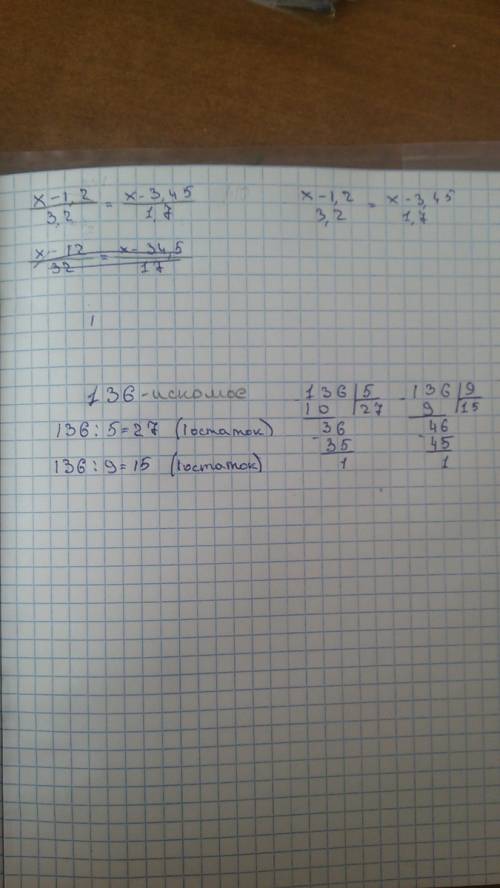 x-1,2 / 3,2 = x-3,45 / 1,7
x-1,2 / 3,2 = x-3,45 / 1,7
x-12 / 32 = x-34,5 / 17
136-искомое
136:5=27 (1остаток)
136:9=15 (1остаток)
136|5
10|27
36
35
1
136|9
9|15
46
45
1